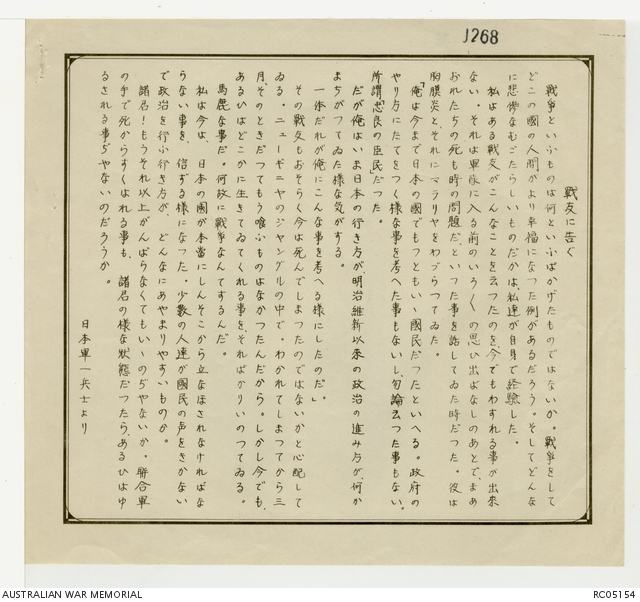 J268
戦友に告ぐ
戦争といふものは何といふばかげたものではないか。戦争をして
どこの國の人間がより幸福になつた例があるだらう。そしてどんな
に悲惨なむごたらしいものだかは、私達が自身で経験した。
私はある戦友がこんなことを云つたのを、今でもわすれる事が出来
ない。それは軍隊に入る前のいろ〱の思ひ出ばなしのあとで、まあ
おれたちの死も時の問題だ、といつた事を話してゐた時だつた。彼は
肋膜炎と、それにマラリヤをわづらつてゐた。
「俺は今まで日本の國でもつともいゝ國民だつたといへる。政府の
やり方にたてをつく様な事を考へた事もないし、勿論云つた事もない。
所謂「忠良の臣民」だつた。
だが俺はいま日本の行き方が、明治維新以来の政治の進み方が、何か
まちがつてゐた様な気がする。
一体だれが俺にこんな事を考へる様にしたのだ」
その戦友もおそらく今は死んでしまつたのではないかと心配して
ゐる。ニューギニヤのジャングルの中で、わかれてしまつてから三
月、そのときだつてもう喰ふものはなかつたんだから。しかし今でも、
あるひはどこかに生きてゐてくれる事を、そればかりいのつてゐる。
馬鹿な事だ。何故に戦争なんてするんだ。
私は今は、日本の國が本當にしんそこから立なほされなければな
らない事を、信ずる様になつた。少数の人達が國民の声をきかない
で政治を行ふ行き方が、どんなにあやまりやすいものか。
諸君！もうそれ以上がんばらなくてもいゝのぢやないか。聯合軍
の手で死からすくはれる事も、諸君の様な状態だつたら、あるひはゆ
るされる事ぢやないのだらうか。
日本軍一兵士より
AUSTRALIAN WAR MEMORIAL
RC05154